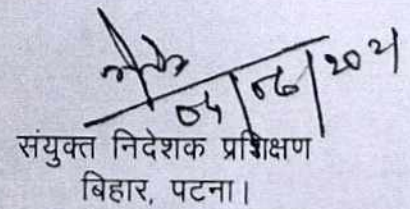 04/06/2021
संयुक्त निदेशक प्रशिक्षण
बिहार, पटना।